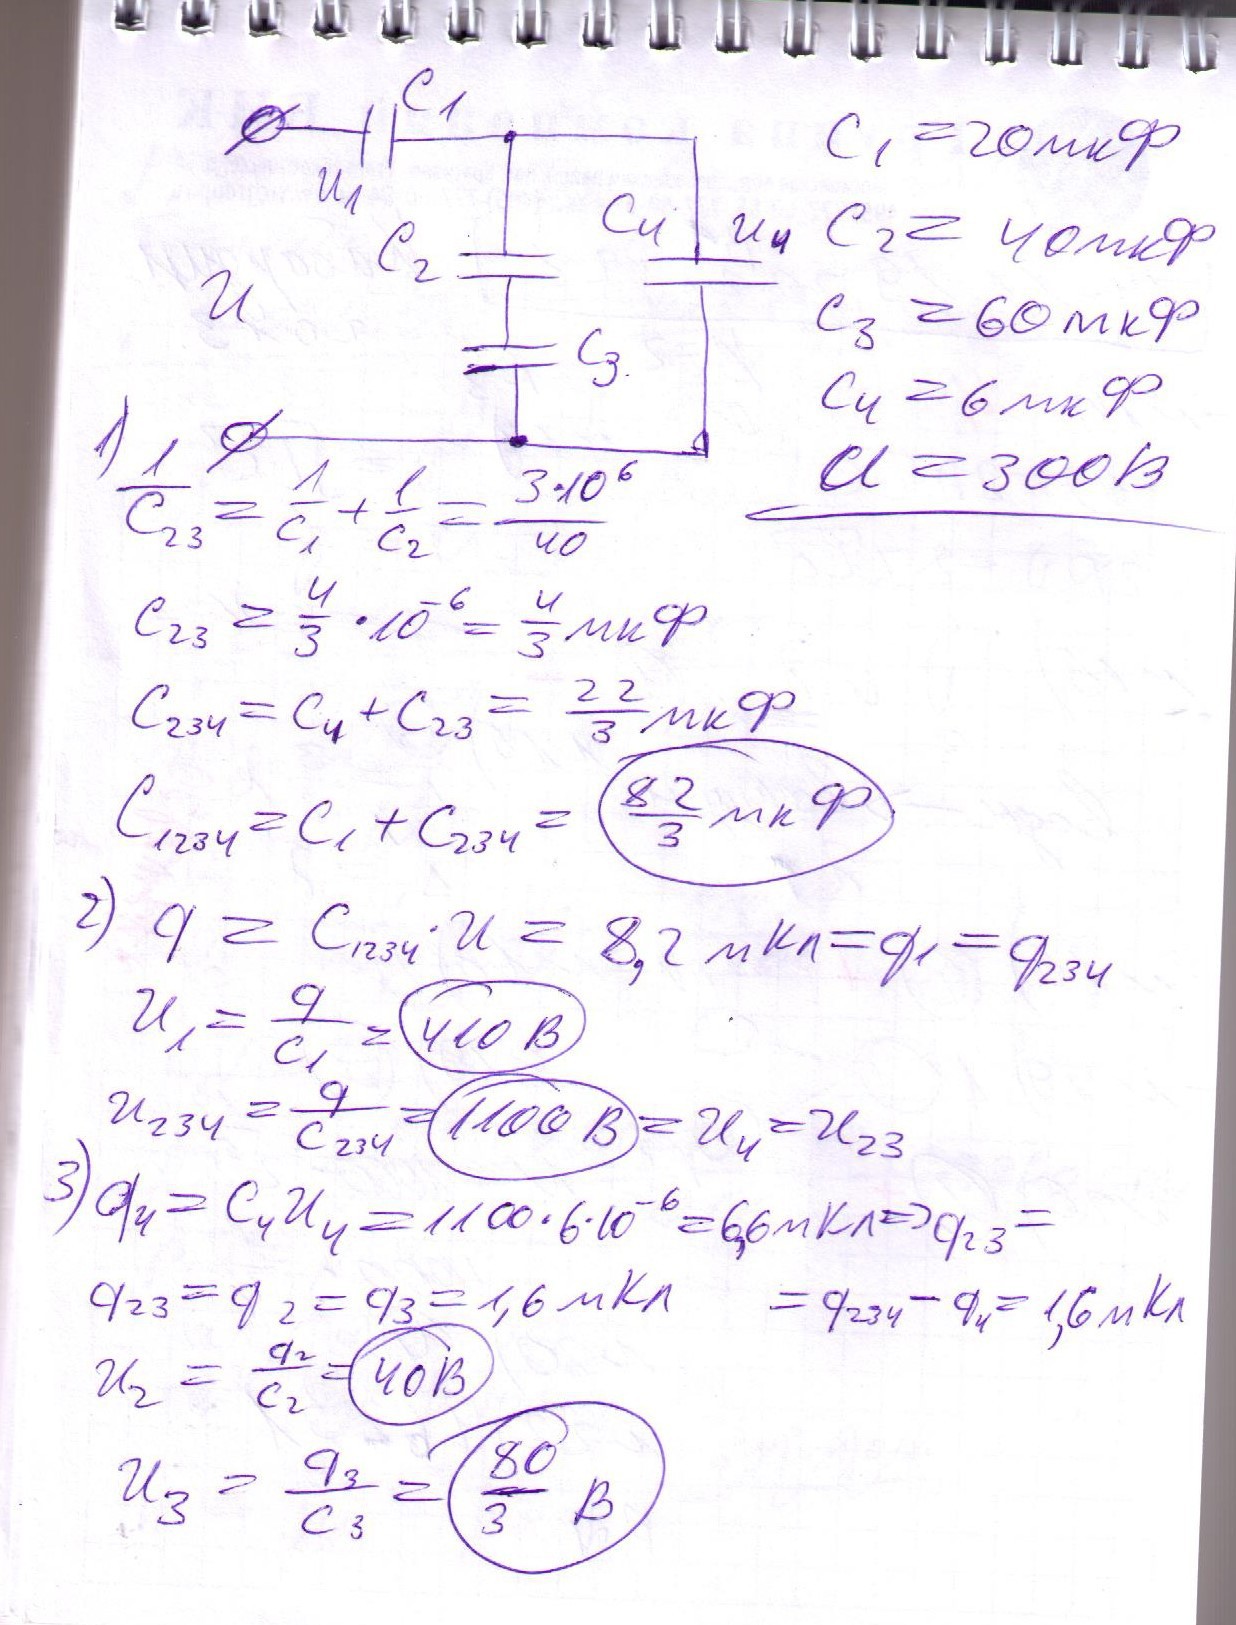 C1
U1
C2
C4 U4
U
C3
C1 = 20 мкФ
C2 = 40 мкФ
C3 = 60 мкФ
C4 = 6 мкФ
U = 300 В
1) 1/C23 = 1/C1 + 1/C2 = 3·10^6/40
C23 = 4/3 · 10^-6 = 4/3 мкФ
C234 = C4 + C23 = 22/3 мкФ
C1234 = C1 + C234 = 82/3 мкФ
2) q = C1234 · U = 8,2 мКл = q1 = q234
U1 = q/C1 = 410 В
U234 = q/C234 = 1100 В = U4 = U23
3) q4 = C4U4 = 1100·6·10^-6 = 6,6 мКл => q23 =
= q234 - q4 = 1,6 мКл
q23 = q2 = q3 = 1,6 мКл
U2 = q2/C2 = 40 В
U3 = q3/C3 = 80/3 В